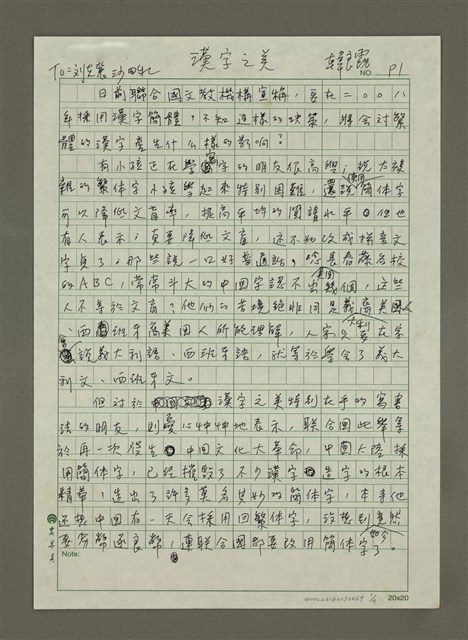 To:刘克襄 沙田私
漢字之美 韓良露
NO. P1
日前聯合國文教機構宣稱,要在二〇〇八
年採用漢字簡體,不知這樣的決策,將会对繁
體的漢字產生什么樣的影响?
有小孩正在學寫字的朋友很高興,說太複
雜的繁体字小孩學起來特別困難,還說使用簡体字
可以降低文盲率,提高平均的閱讀水平。但也
有人表示,真要降低文盲,还不如改成拼音文
字算了,那些說一口好普通話,唸長春藤名校
的ABC,常常斗大的中國字認不出幾個,这些
人不等於文盲?他們的苦境絕非同是義裔美國人
、西班牙裔美國人所能理解,人家只要在学
會說義大利語、西班牙語,就等於學会了義大
利文、西班牙文。
但对於漢字之美特別在乎的寫書
法的朋友,則憂心忡忡地表示,聯合國此舉等
於再一次發生中國文化大革命,中國大陸採
用簡体字,已經摧毀了不少漢字造字的根本
精華,造出了許多莫名其妙的簡体字,本來他
还指中國有一天会採用回繁体字,沒想到竟然
要劣幣逐良幣,連聯合國都要改用簡体字了。
Note:
20x20